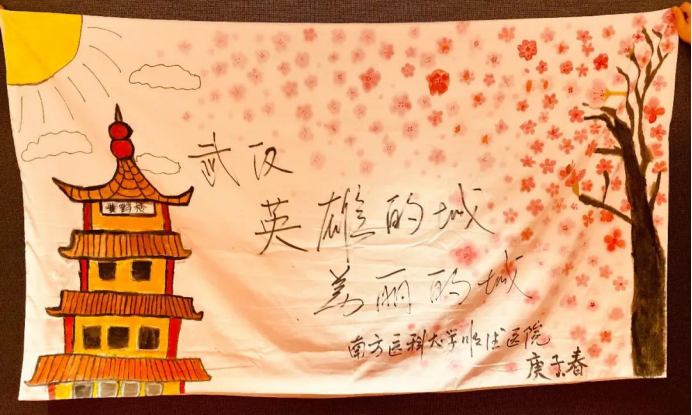 黄鹤楼
武汉
英雄的城
美丽的城
南方医科大学顺德医院
庚子春